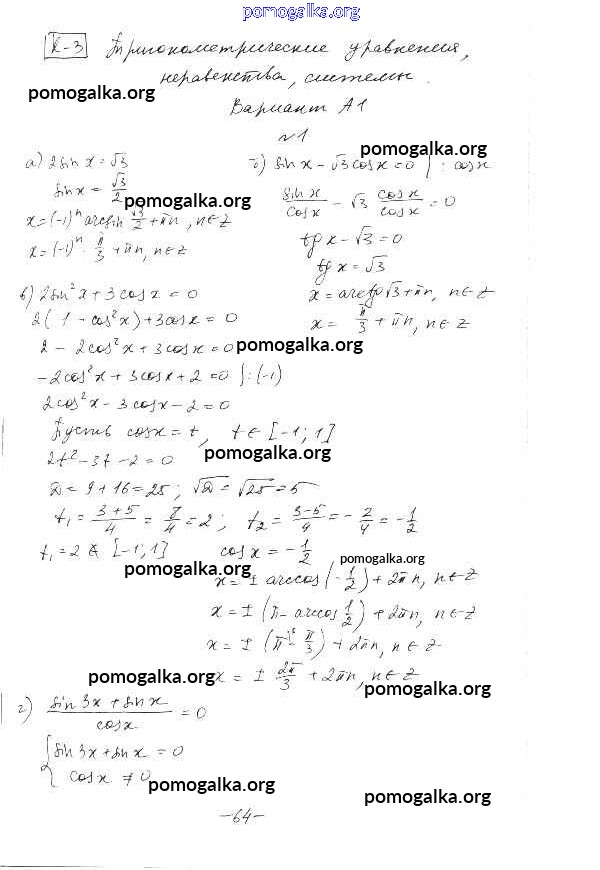 pomogalka.org
К-3 Тригонометрические уравнения,
неравенства, системы.
pomogalka.org
Вариант А1
№1
pomogalka.org
а) 2sin x = √3
sin x = √3/2
pomogalka.org
x = (-1)ⁿ arcsin √3/2 + πn, n∈Z
x = (-1)ⁿ · π/3 + πn, n∈Z
б) sin x - √3 cos x = 0 | : cos x
sin x/cos x - √3 cos x/cos x = 0
tg x - √3 = 0
tg x = √3
x = arctg √3 + πn, n∈Z
x = π/3 + πn, n∈Z
в) 2sin²x + 3cos x = 0
2(1 - cos²x) + 3cos x = 0
2 - 2cos²x + 3cos x = 0
pomogalka.org
-2cos²x + 3cos x + 2 = 0 | : (-1)
2cos²x - 3cos x - 2 = 0
Пусть cos x = t, t∈[-1; 1]
2t² - 3t - 2 = 0
pomogalka.org
D = 9 + 16 = 25; √D = √25 = 5
t₁ = (3+5)/4 = 8/4 = 2; t₂ = (3-5)/4 = -2/4 = -1/2
t₁ = 2 ∉ [-1; 1] cos x = -1/2
pomogalka.org
pomogalka.org
x = ± arccos(-1/2) + 2πn, n∈Z
x = ± (π - arccos 1/2) + 2πn, n∈Z
x = ± (π - π/3) + 2πn, n∈Z
pomogalka.org
x = ± 2π/3 + 2πn, n∈Z
pomogalka.org
г) (sin 3x + sin x)/cos x = 0
{ sin 3x + sin x = 0
cos x ≠ 0
pomogalka.org
pomogalka.org
-64-